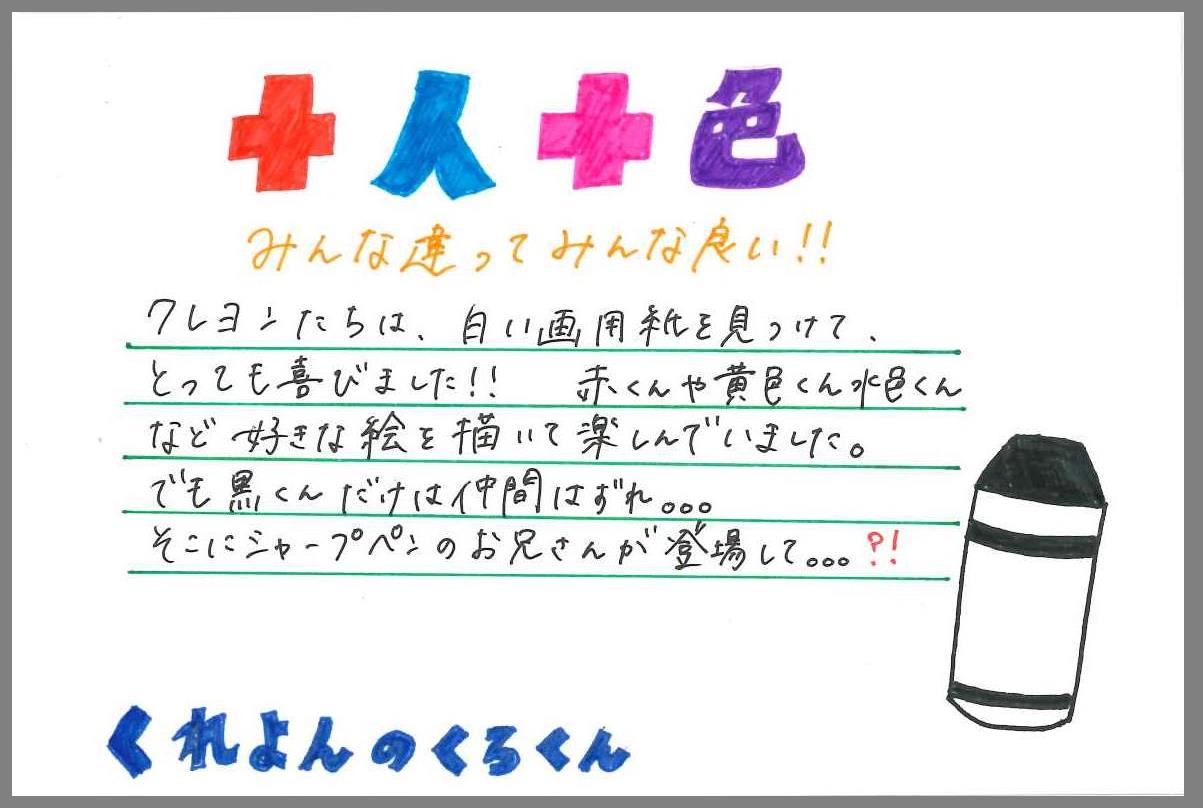 十人十色
みんな違ってみんな良い!!
クレヨンたちは、白い画用紙を見つけて、
とっても喜びました!! 赤くんや黄色くん水色くん
など好きな絵を描いて楽しんでいました。
でも黒くんだけは仲間はずれ...
そこにシャープペンのお兄さんが登場して...?!
くれよんのくろくん